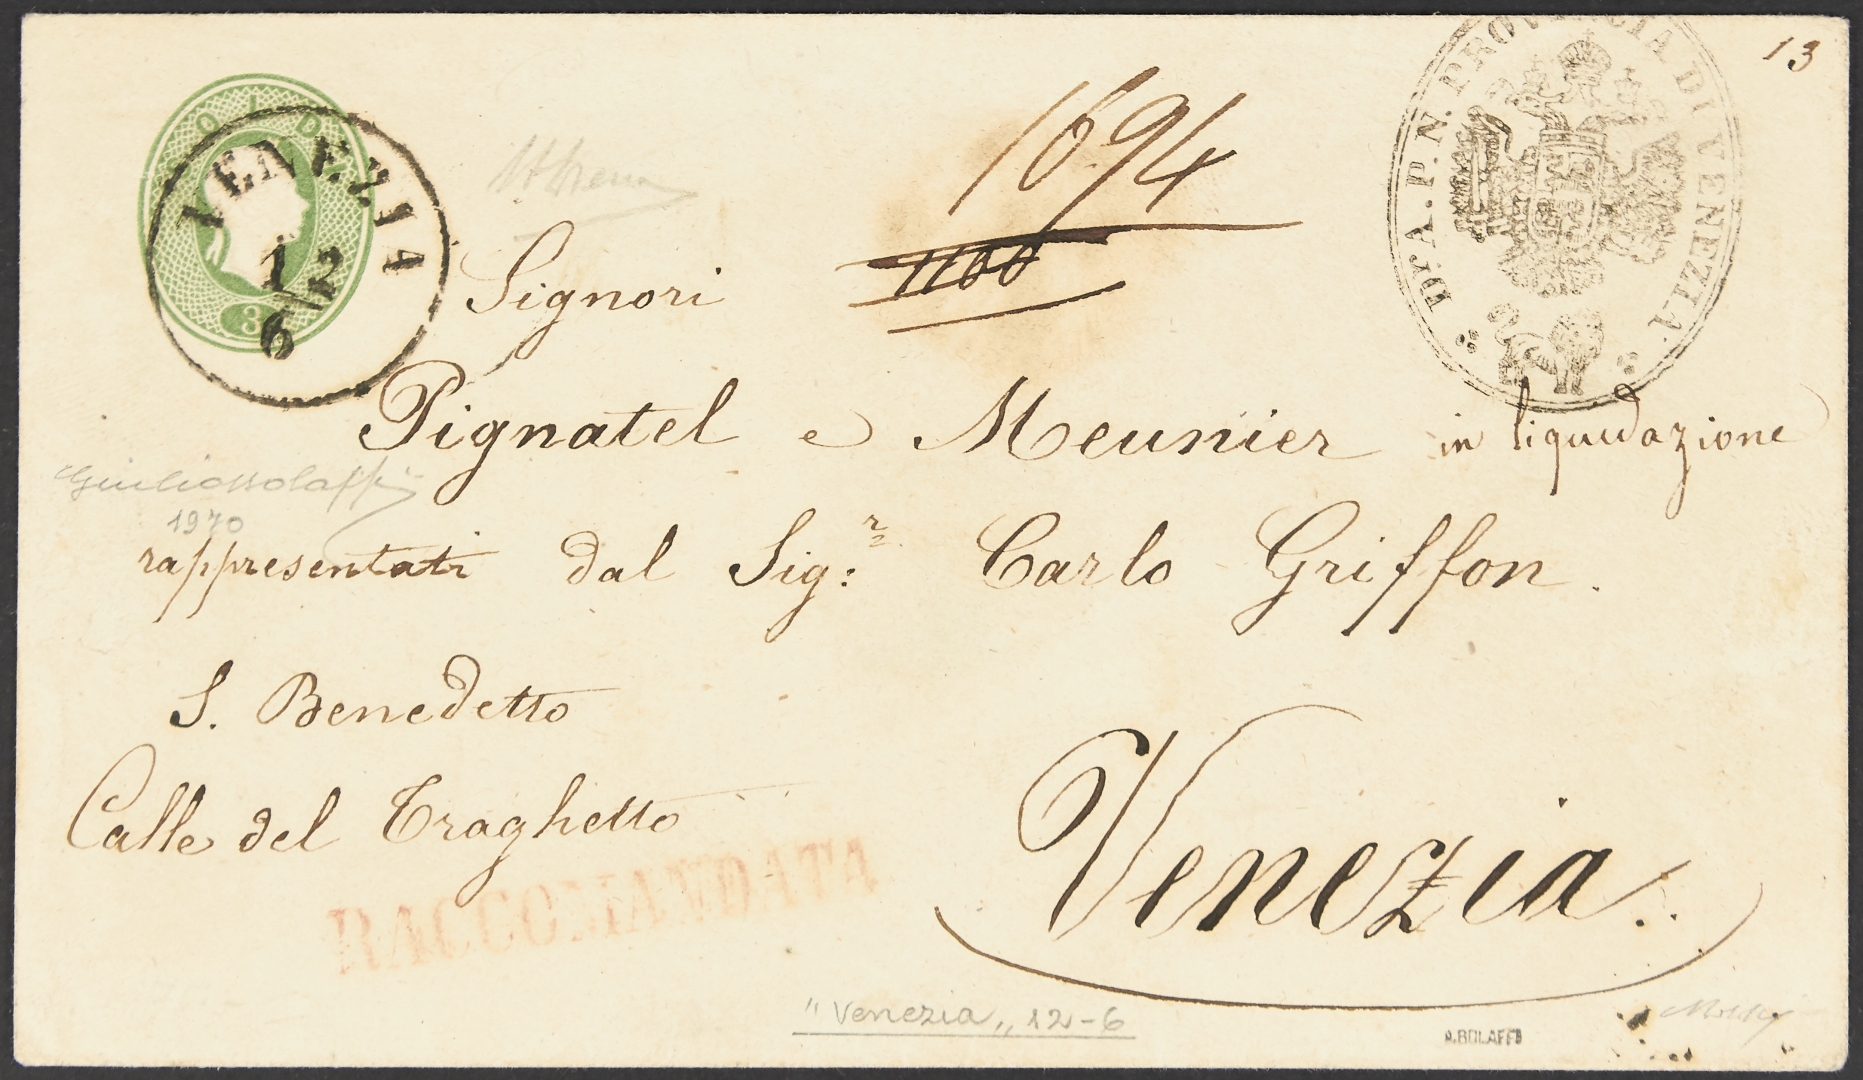 13
Dr. A. P. N. PROVINCIA DI VENEZIA
SOLDI
3
VENEZIA
12
6
1694
1100
Signori
Pignatel e Meunier in liquidazione
1970
rappresentati dal Sig:r Carlo Griffon.
S. Benedetto
Calle del Traghetto
RACCOMANDATA
Venezia.
"Venezia„ 12-6
A.BOLAFFI